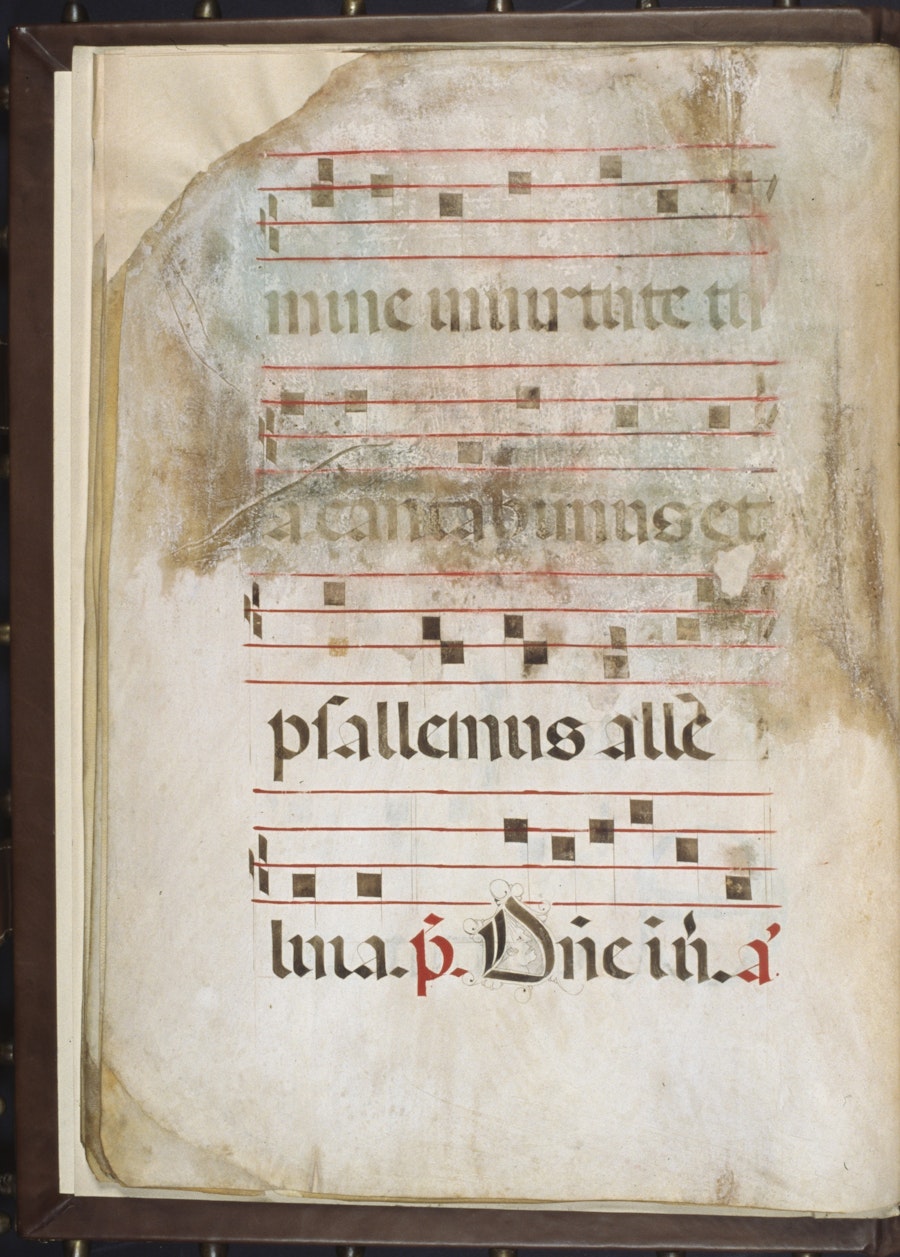 mine in uirtute tu
a cantabimus et
psallemus allẽ
luia. p̃. Dñe in ũ. a